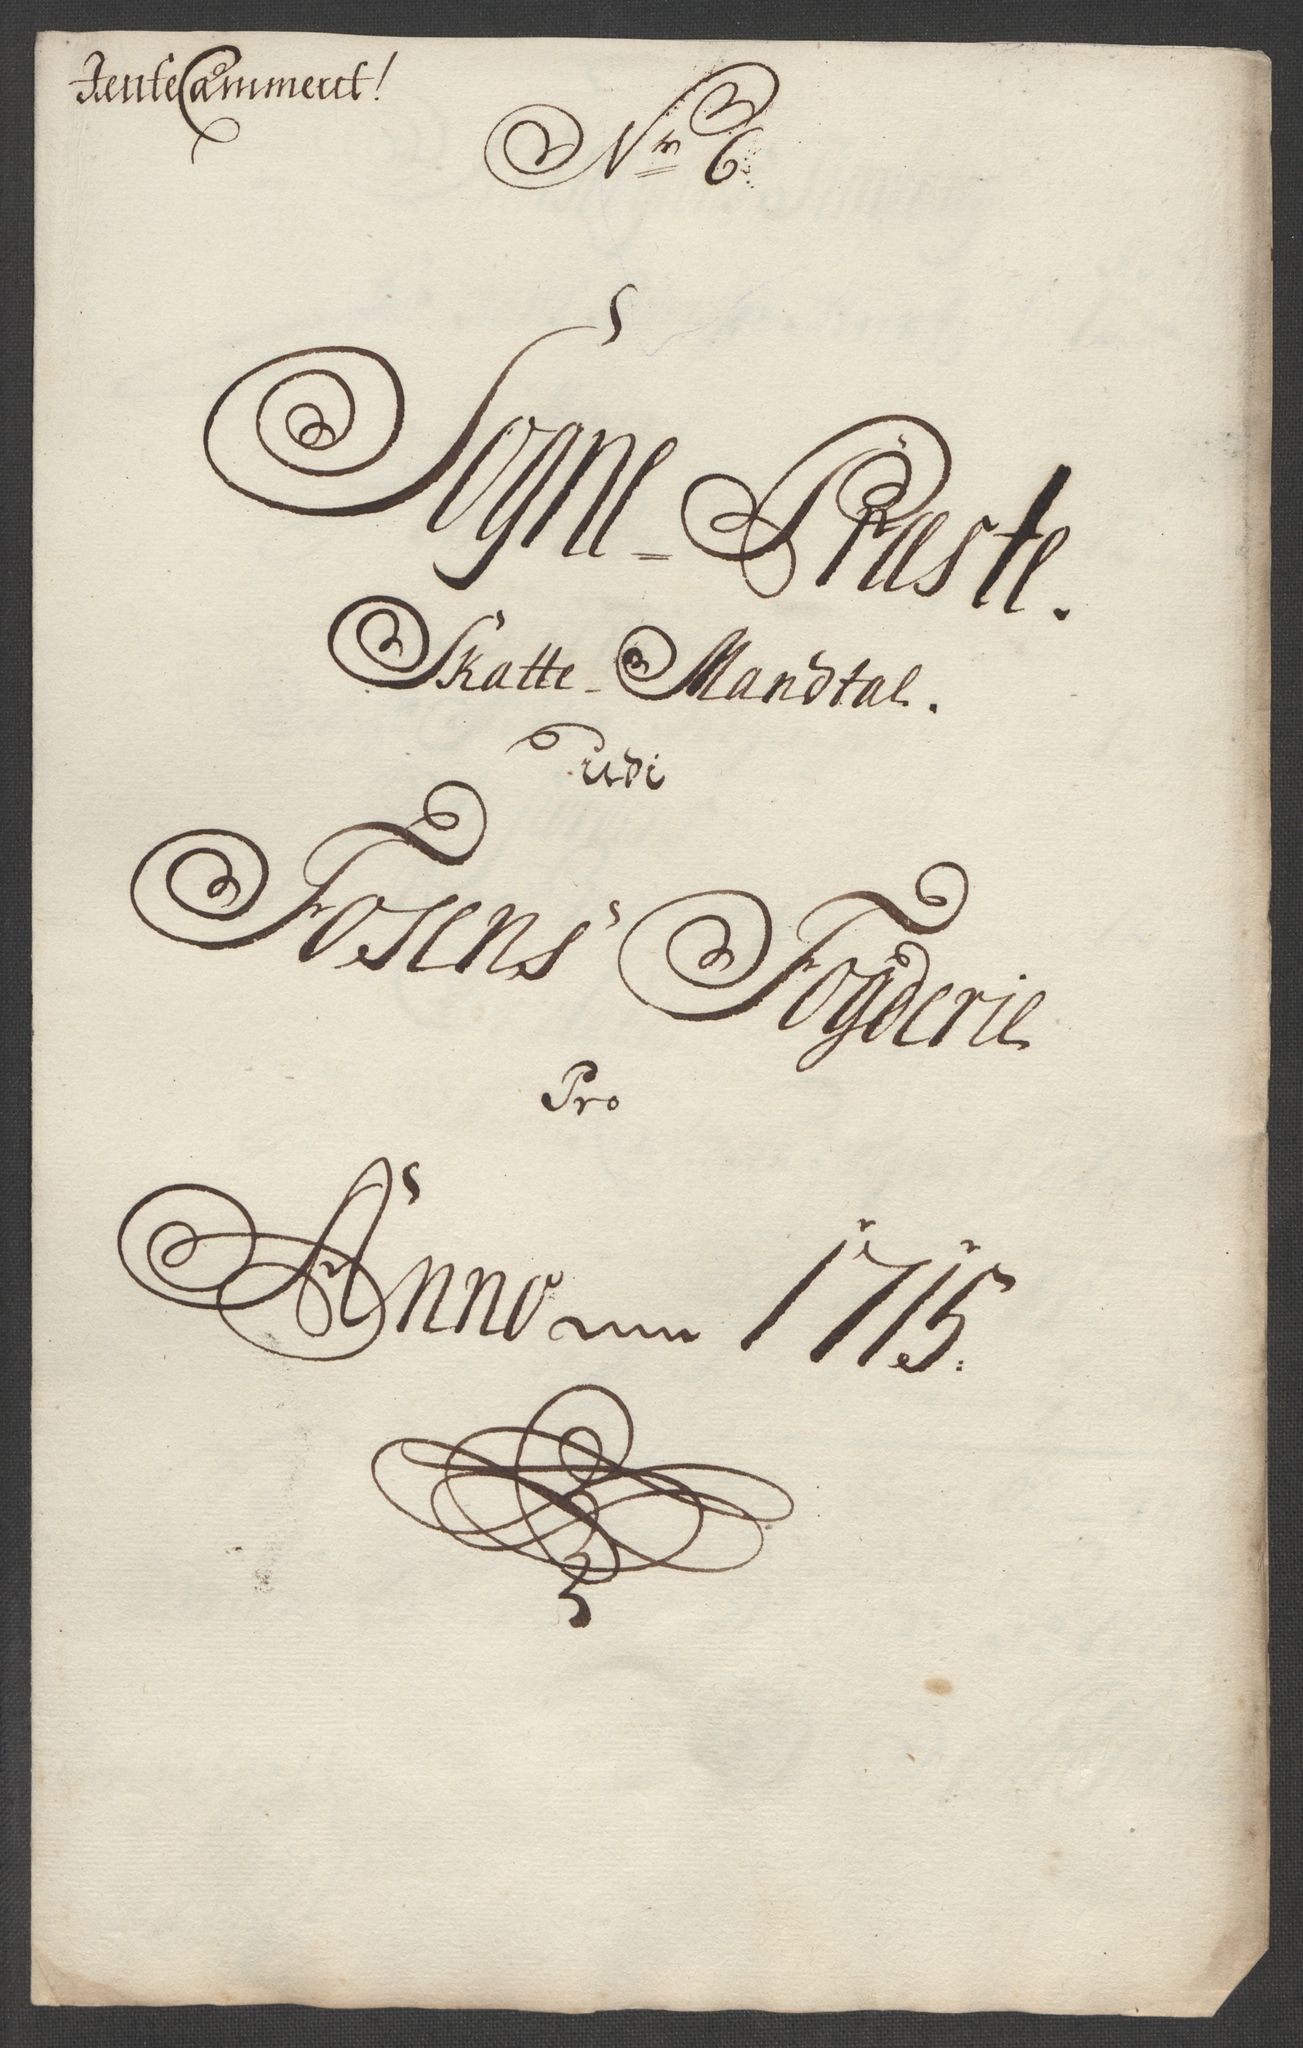 RenteCammeret!
Nr 6
Sogne-Præste.
Skatte-Mandtal.
udi
Fosens Fogderie
Pro
Anno 1715.